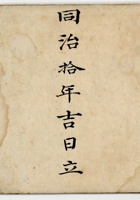 同治拾年吉日立